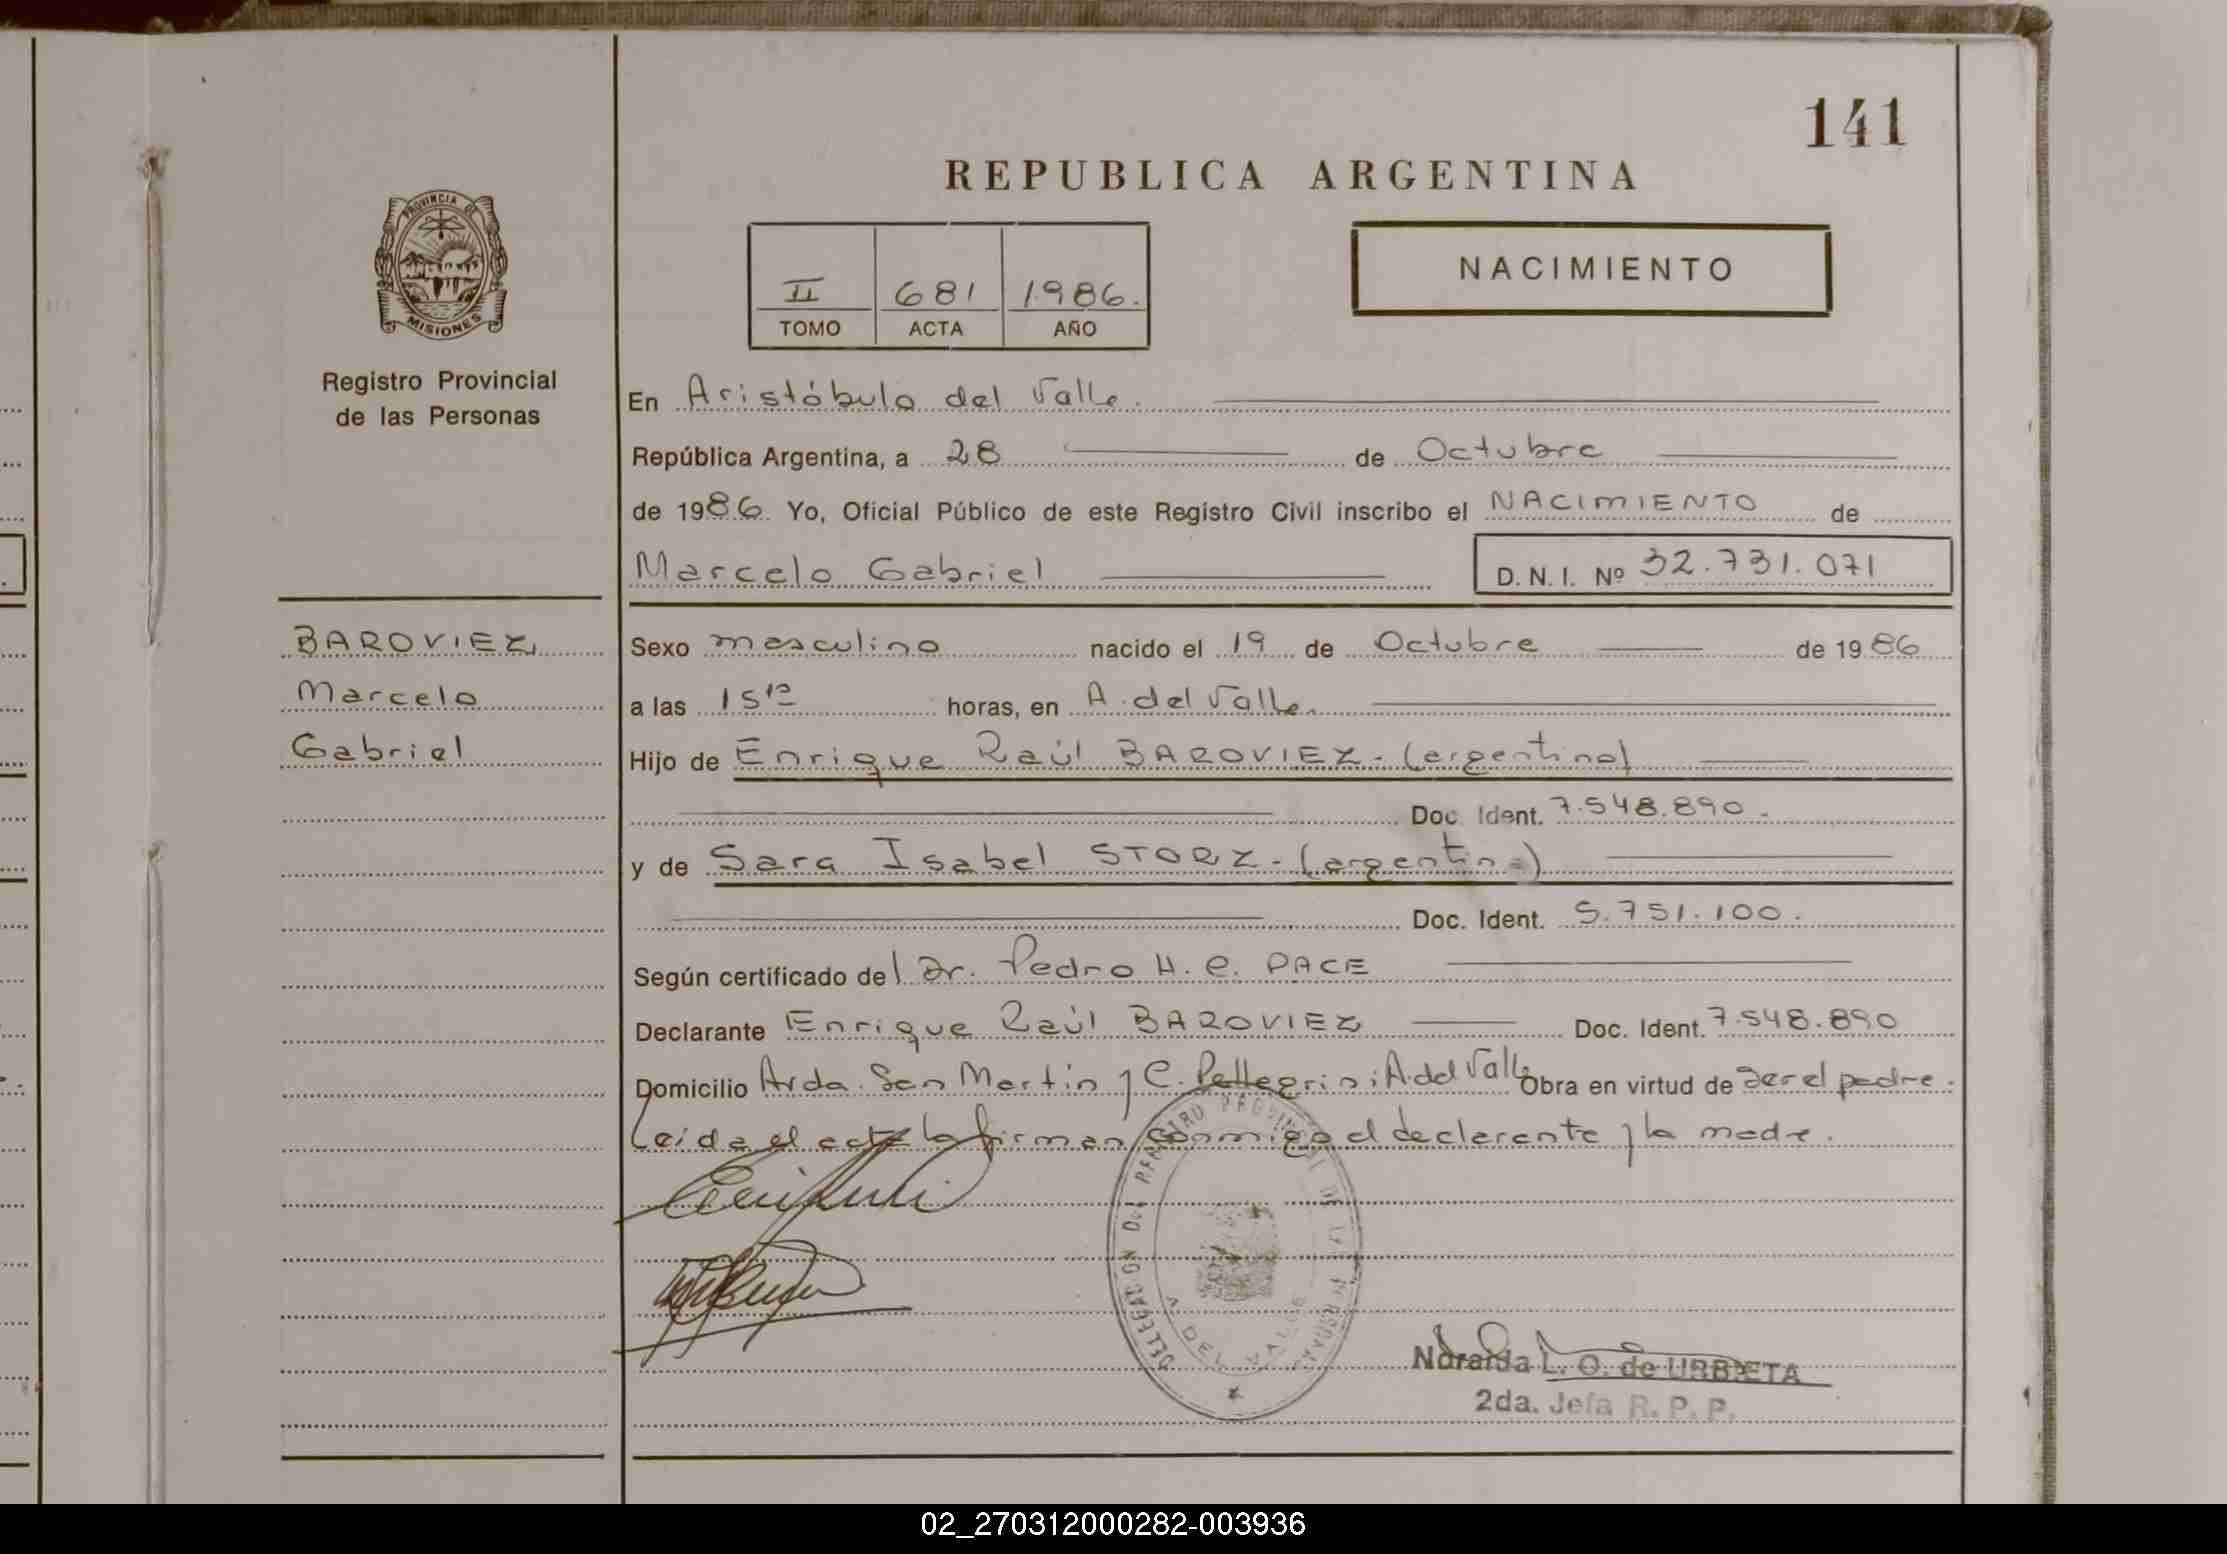 141
REPUBLICA ARGENTINA
PROVINCIA DE
MISIONES
Registro Provincial
de las Personas
II 681 1986.
TOMO ACTA AÑO
NACIMIENTO
En Aristóbulo del Valle.
República Argentina, a 28 de Octubre
de 1986. Yo, Oficial Público de este Registro Civil inscribo el NACIMIENTO de
Marcelo Gabriel
D. N. I. Nº 32.731.071
BAROVIEZ,
Marcelo
Gabriel
Sexo masculino nacido el 19 de Octubre de 1986
a las 15¹⁰ horas, en A. del Valle.
Hijo de Enrique Raúl BAROVIEZ - (argentino)
Doc. Ident. 7.548.890.
y de Sara Isabel STORZ - (argentina)
Doc. Ident. 5.751.100.
Según certificado del Dr. Pedro H. C. PACE
Declarante Enrique Raúl BAROVIEZ Doc. Ident. 7.548.890
Domicilio Avda. San Martin y C. Pellegrini; A. del Valle Obra en virtud de ser el padre.
Leida el acta la firman conmigo el declarante y la madre.
DELEGACION DEL REGISTRO PROVINCIAL DE LAS PERSONAS
A. DEL VALLE
Noraida L. O. de URBIETA
2da. Jefa R. P. P.
02_270312000282-003936